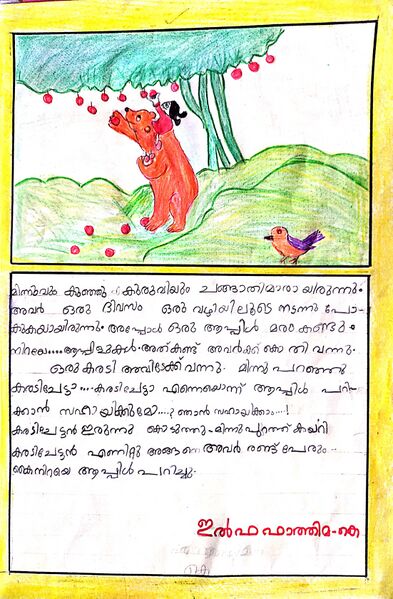 മിന്നുവും കുഞ്ഞു കുരുവിയും ചങ്ങാതിമാരായിരുന്നു.
അവർ ഒരു ദിവസം ഒരു വഴിയിലൂടെ നടന്നു പോ-
കുകയായിരുന്നു. അപ്പോൾ ഒരു ആപ്പിൾ മരം കണ്ടു.
നിറയെ.... ആപ്പിളുകൾ. അത് കണ്ട് അവർക്ക് കൊതി വന്നു.
ഒരു കരടി അവിടേക്ക് വന്നു. മിന്നു പറഞ്ഞു
കരടിചേട്ടാ.... കരടിചേട്ടാ എന്നെയൊന്ന് ആപ്പിൾ പറി-
ക്കാൻ സഹായിക്കുമോ....? ഞാൻ സഹായിക്കാം....!
കരടിചേട്ടൻ ഇരുന്നു കൊടുത്തു. മിന്നു പുറത്ത് കയറി
കരടിചേട്ടൻ എണീറ്റു അങ്ങനെ അവർ രണ്ട് പേരും
കൈനിറയെ ആപ്പിൾ പറിച്ചു.
ഇൽഫ ഫാത്തിമ-കെ